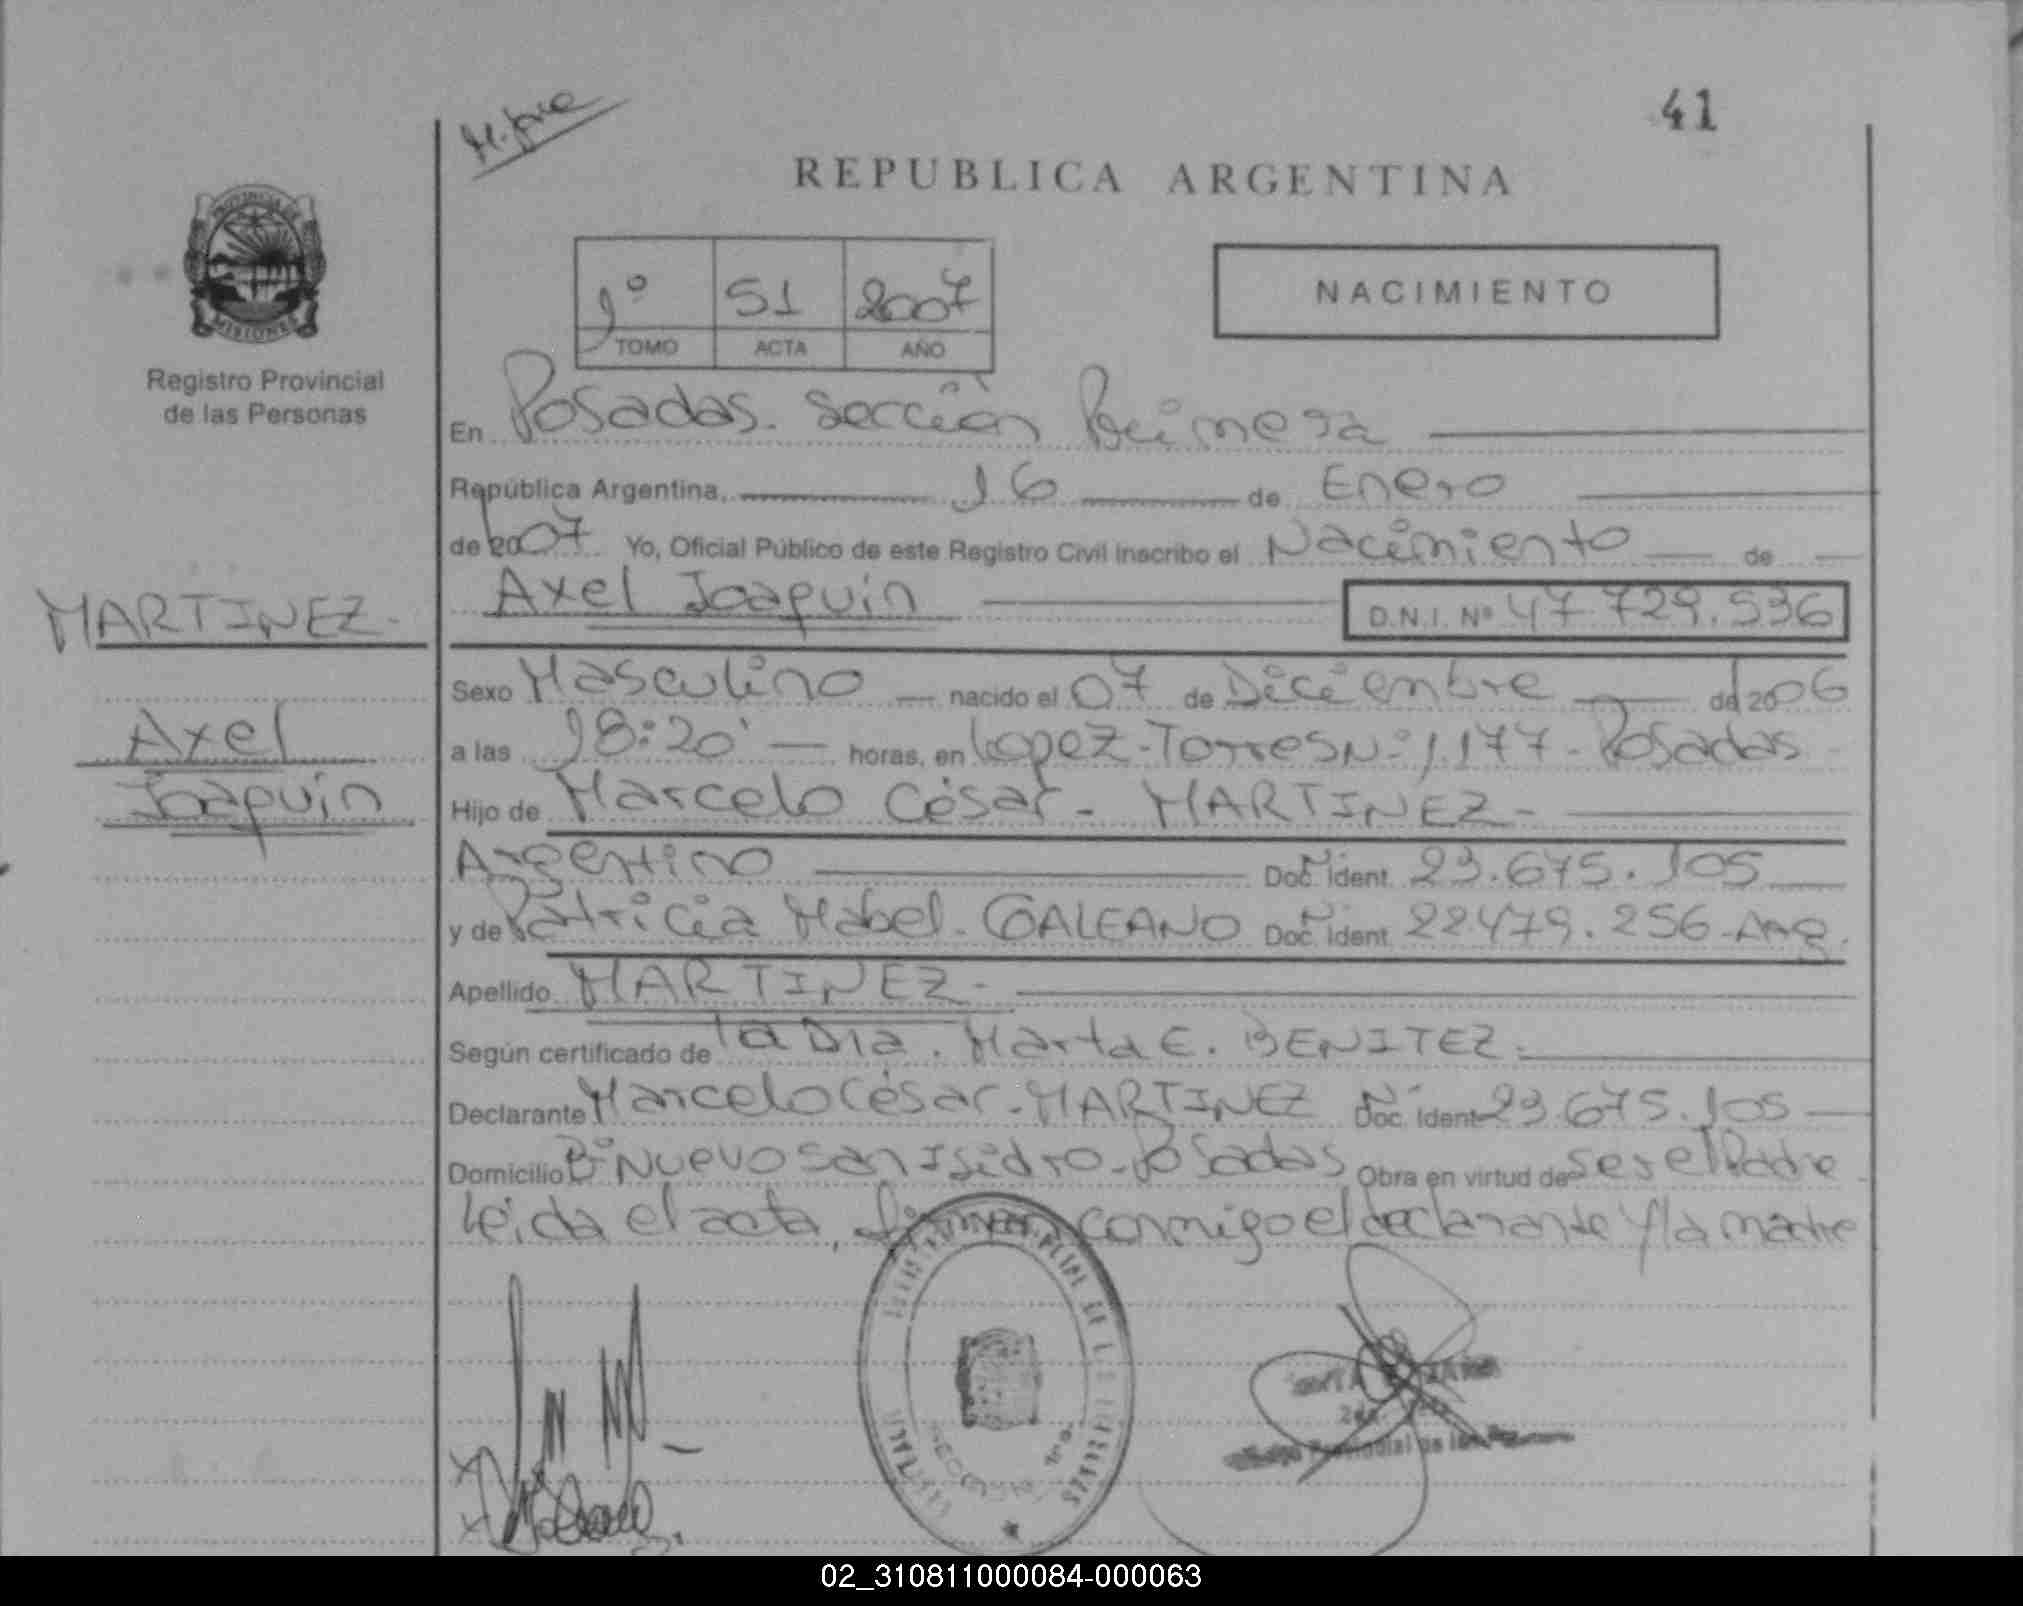 41
REPUBLICA ARGENTINA
PROVINCIA DE
MISIONES
Registro Provincial
de las Personas
1º 51 2007
TOMO ACTA AÑO
NACIMIENTO
En Posadas. Sección Primera
República Argentina, 16 de Enero
de 2007 Yo, Oficial Público de este Registro Civil inscribo el Nacimiento de
Axel Joaquín D.N.I. Nº 47.729.536
MARTINEZ.
Axel
Joaquín
Sexo Masculino nacido el 07 de Diciembre de 2006
a las 18:20' horas, en Lopez-Torres Nº 1.177-Posadas
Hijo de Marcelo César - MARTINEZ -
Argentino Doc. Ident. 23.675.105
y de Patricia Mabel - GALEANO Doc. Ident. 22.479.256-Arg.
Apellido MARTINEZ -
Según certificado de la Dra. Marta E. BENITEZ.
Declarante Marcelo César - MARTINEZ Doc. Ident 23.675.105
Domicilio Bº Nuevo San Isidro - Posadas Obra en virtud de ser el Padre
Leída el acta, firman conmigo el declarante y la madre
02_310811000084-000063